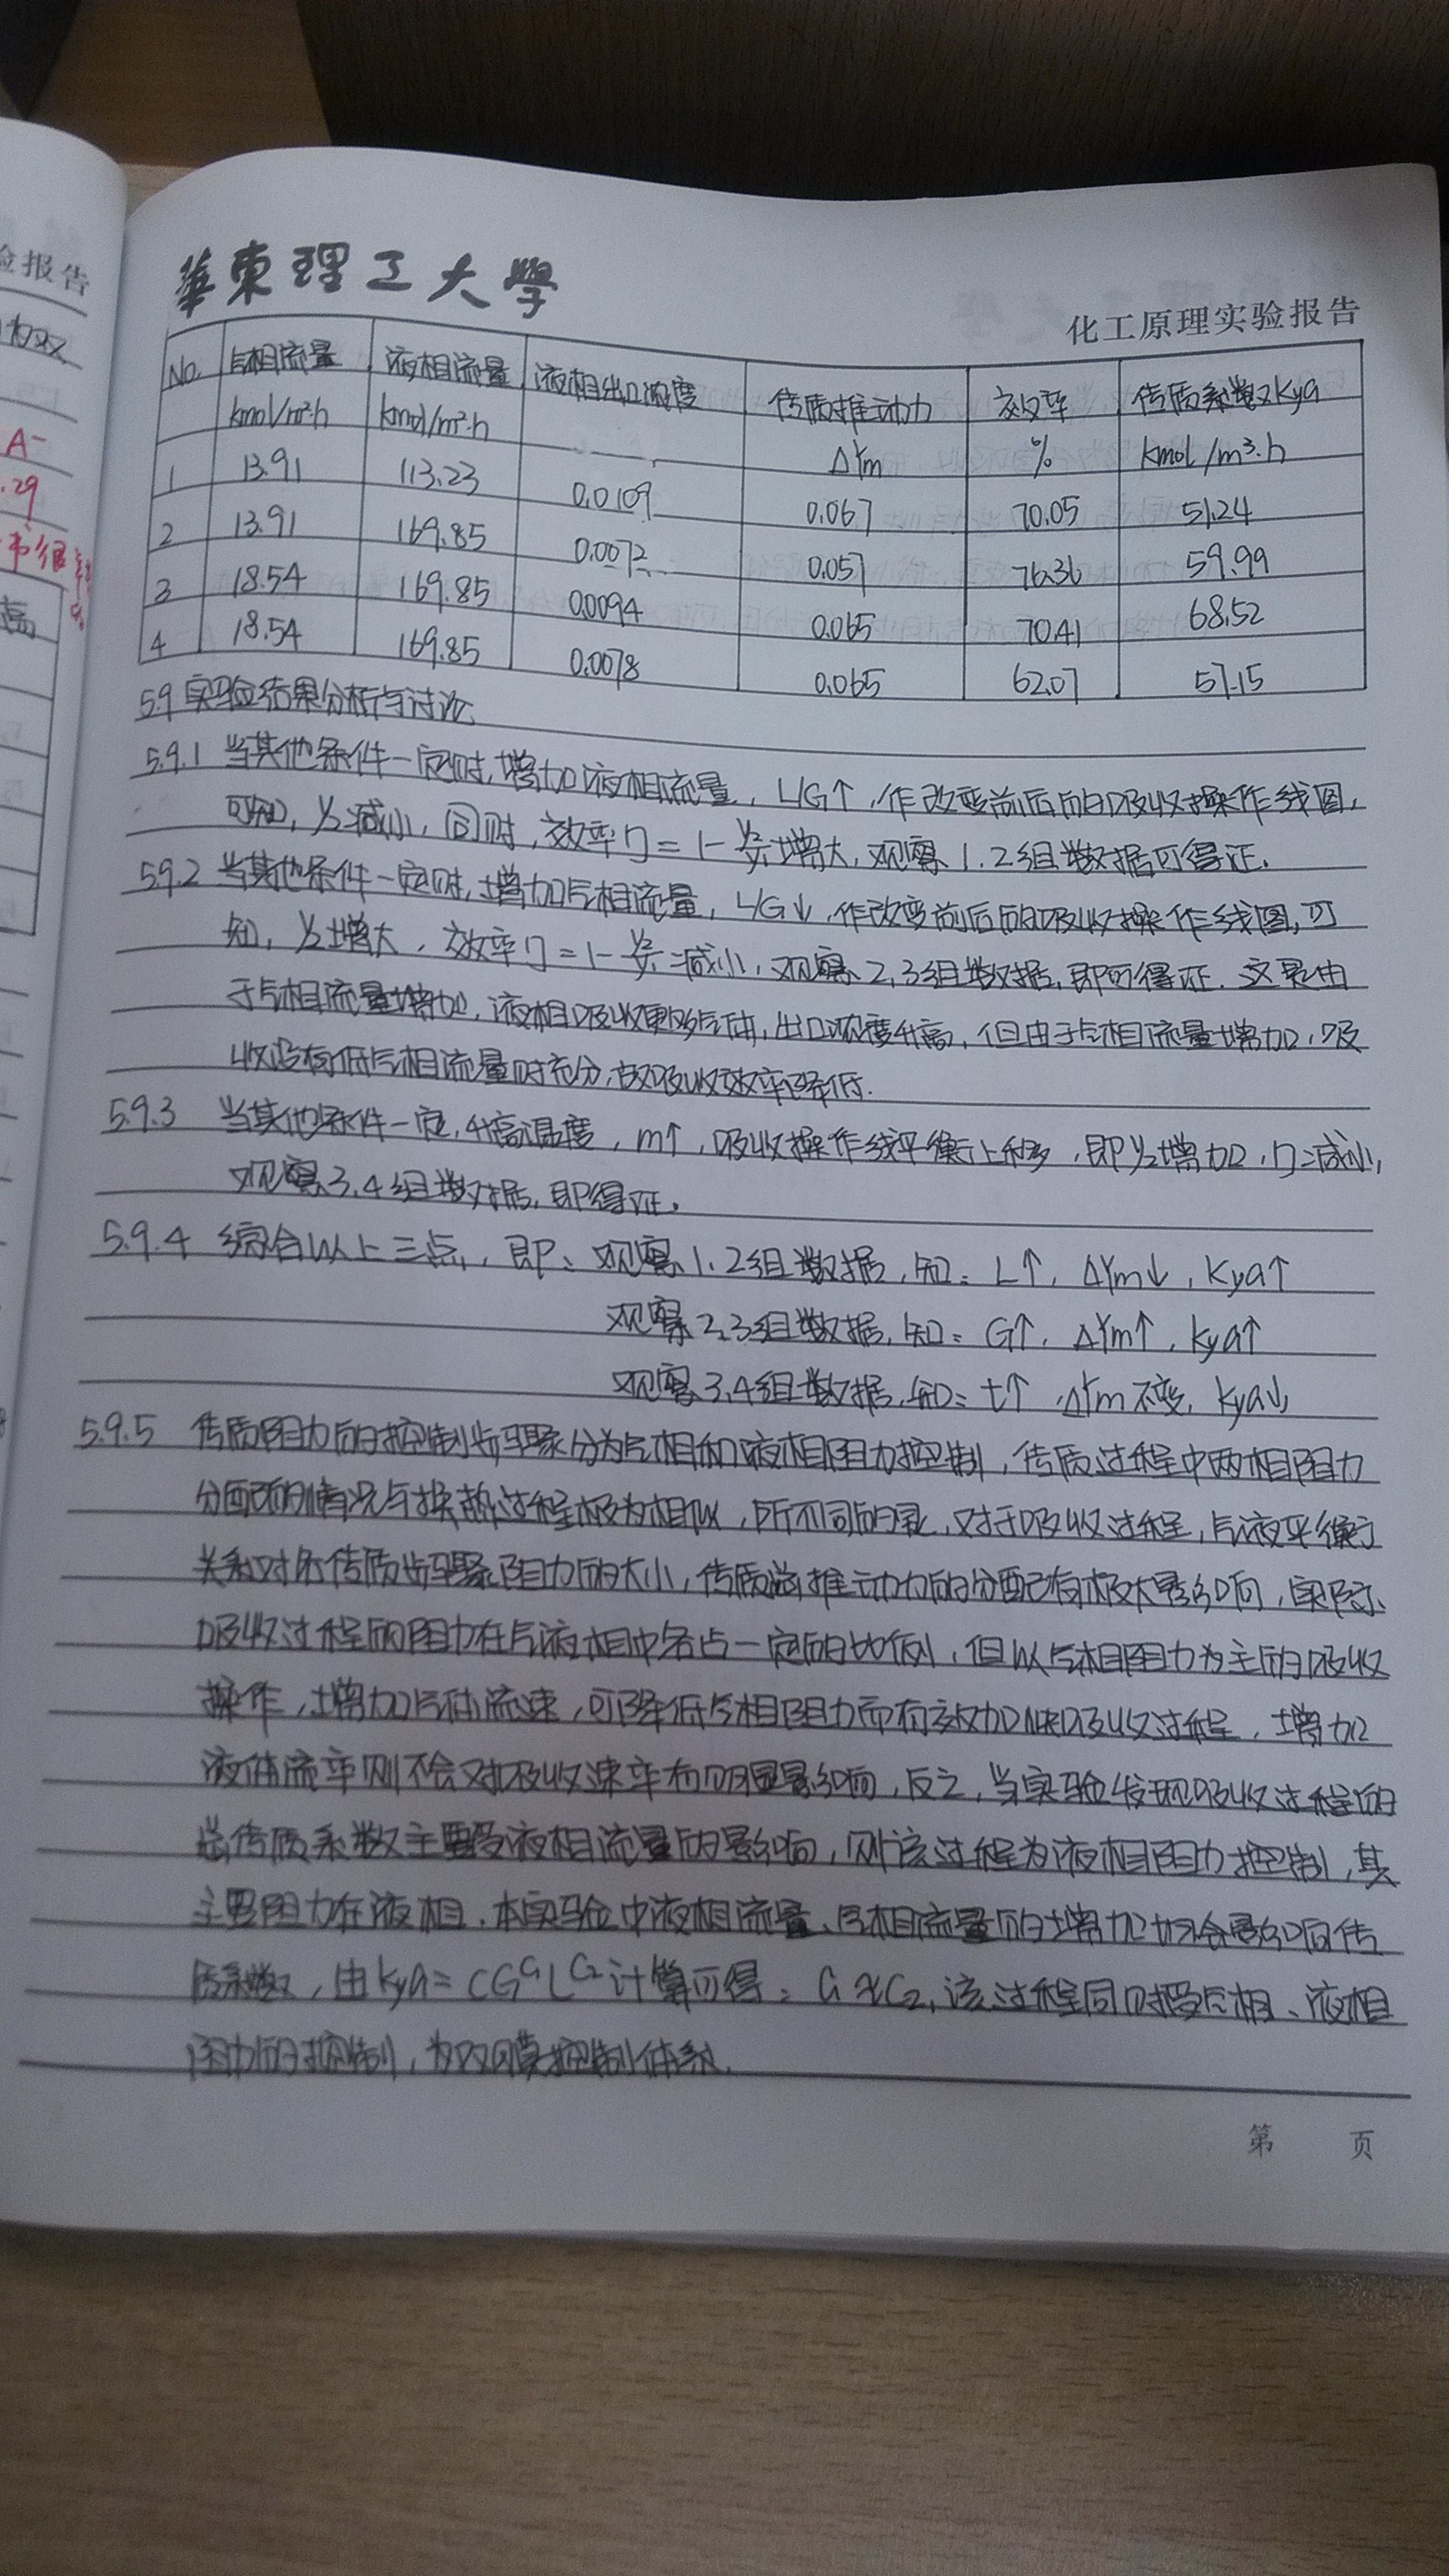 验报告
A-
.29
華東理工大學
化工原理实验报告
No. 气相流量 液相流量 液相出口浓度 传质推动力 效率 传质系数Kya
kmol/m²·h kmol/m²·h ΔYm % kmol/m³·h
1 13.91 113.23 0.0109 0.067 70.05 51.24
2 13.91 169.85 0.0072 0.057 76.36 59.99
3 18.54 169.85 0.0094 0.065 70.41 68.52
4 18.54 169.85 0.0078 0.065 62.07 57.15
5.9 实验结果分析与讨论
5.9.1 当其他条件一定时,增加液相流量,L/G↑,作改变前后的吸收操作线图,
可知,y₂减小,同时,效率η=1-y₂/y₁增大,观察1.2组数据可得证.
5.9.2 当其他条件一定时,增加气相流量,L/G↓,作改变前后的吸收操作线图,可
知,y₂增大,效率η=1-y₂/y₁减小,观察2,3组数据,即可得证.这是由
于气相流量增加,液相吸收更多气体,出口浓度升高,但由于气相流量增加,吸
收没有低气相流量时充分,故吸收效率降低.
5.9.3 当其他条件一定,升高温度,m↑,吸收操作线平衡上移,即y₂增加,η减小,
观察3.4组数据,即得证。
5.9.4 综合以上三点,即:观察1.2组数据,知:L↑,ΔYm↓,Kya↑
观察2,3组数据,知:G↑,ΔYm↑,Kya↑
观察3,4组数据,知:t↑,ΔYm不变,Kya↓
5.9.5 传质阻力的控制步骤分为气相和液相阻力控制,传质过程中两相阻力
分配的情况与换热过程极为相似,所不同的是,对于吸收过程,气液平衡
关系对各传质步骤阻力的大小,传质总推动力的分配有极大影响,实际
吸收过程的阻力在气液相中各占一定的比例,但以气相阻力为主的吸收
操作,增加气体流速,可降低气相阻力而有效加快吸收过程,增加
液体流率则不会对吸收速率有明显影响,反之,当实验发现吸收过程的
总传质系数主要受液相流量的影响,则该过程为液相阻力控制,其
主要阻力在液相.本实验中液相流量、气相流量的增加均会影响传
质系数,由Kya=CG^C₁L^C₂计算可得:C₁≈C₂,该过程同时受气相、液相
阻力的控制,为双膜控制体系.
第 页